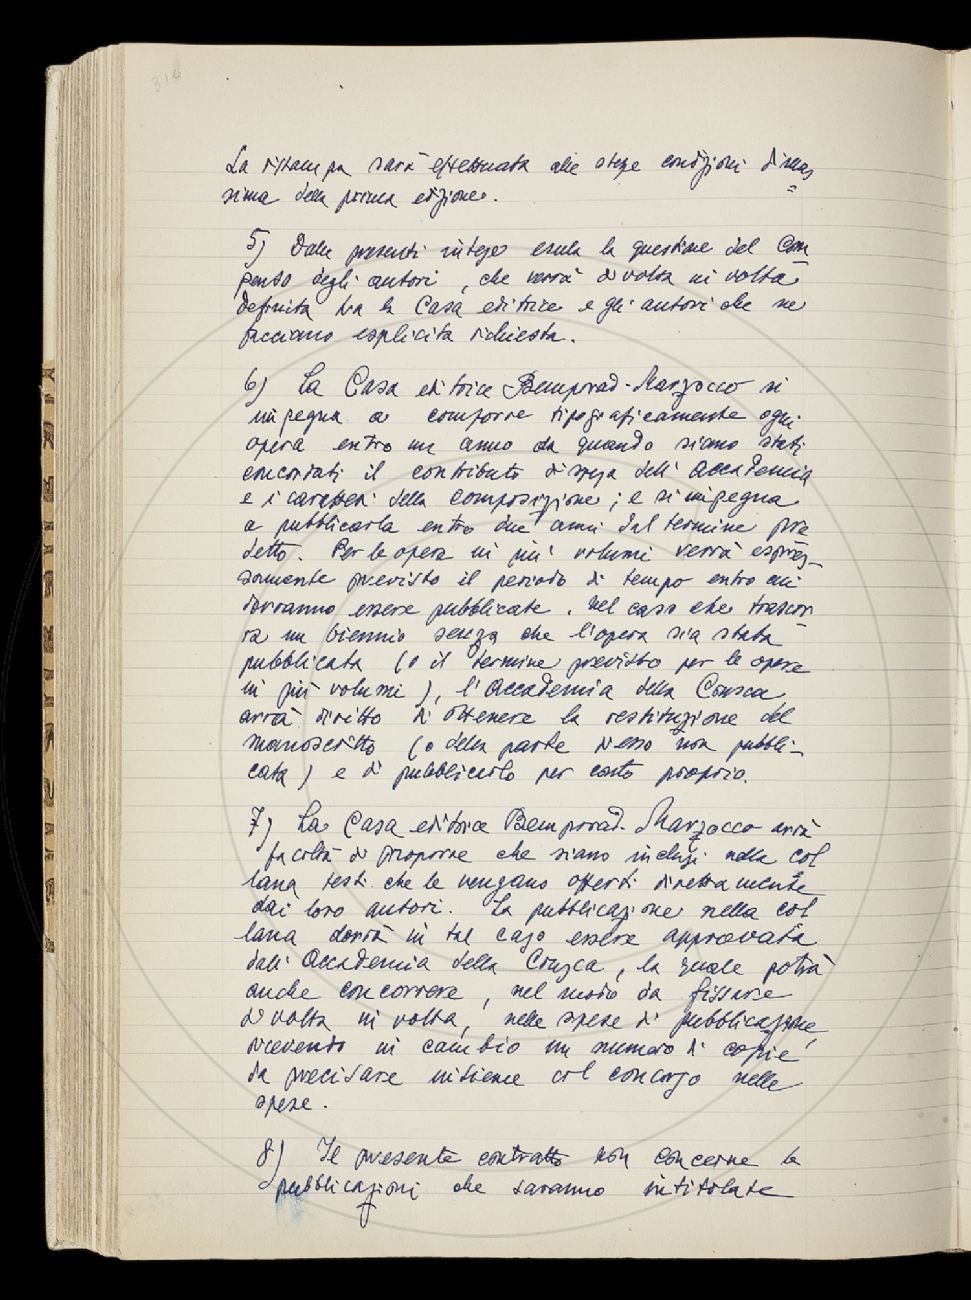 316
La ristampa sarà effettuata alle stesse condizioni di mas=
sima della prima edizione.
5) Dalle presenti intese esula la questione del com
penso degli autori, che verrà di volta in volta
definita tra la Casa editrice e gli autori che ne
facciano esplicita richiesta.
6) La Casa editrice Bemporad-Marzocco si
impegna a comporre tipograficamente ogni
opera entro un anno da quando siano stati
concordati il contributo di spesa dell'Accademia
e i caratteri della composizione; e si impegna
a pubblicarla entro due anni dal termine pre
detto. Per le opere in più volumi verrà espres-
samente previsto il periodo di tempo entro cui
dovranno essere pubblicate. Nel caso che trascor
ra un biennio senza che l'opera sia stata
pubblicata (o il termine previsto per le opere
in più volumi), l'Accademia della Crusca
avrà diritto di ottenere la restituzione del
manoscritto (o della parte di esso non pubbli-
cata) e di pubblicarlo per conto proprio.
7) La Casa editrice Bemporad-Marzocco avrà
facoltà di proporre che siano inclusi nella col
lana testi che le vengano offerti direttamente
dai loro autori. La pubblicazione nella col
lana dovrà in tal caso essere approvata
dall'Accademia della Crusca, la quale potrà
anche concorrere, nel modo da fissare
di volta in volta, nelle spese di pubblicazione,
ricevendo in cambio un numero di copie
da precisare insieme col concorso nelle
spese.
8) Il presente contratto non concerne le
pubblicazioni che saranno intitolate